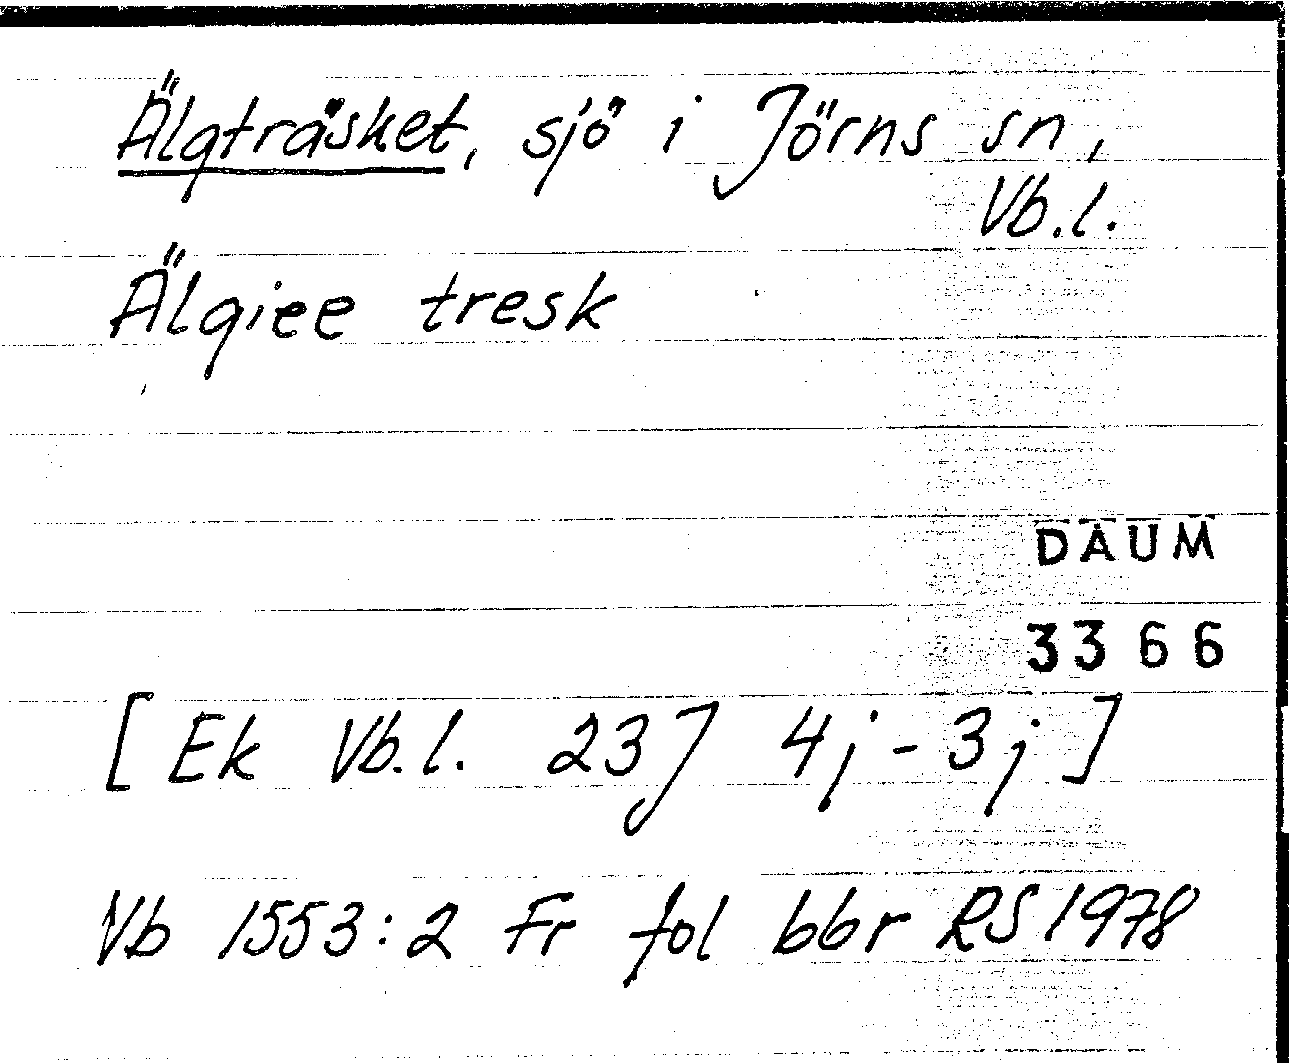 Älgträsket, sjö i Jörns sn,
Vb.l.
Älgiee tresk
DAUM
3366
[Ek Vb.l. 23J 4j-3j]
Vb 1553:2 Fr fol 66r RS 1978